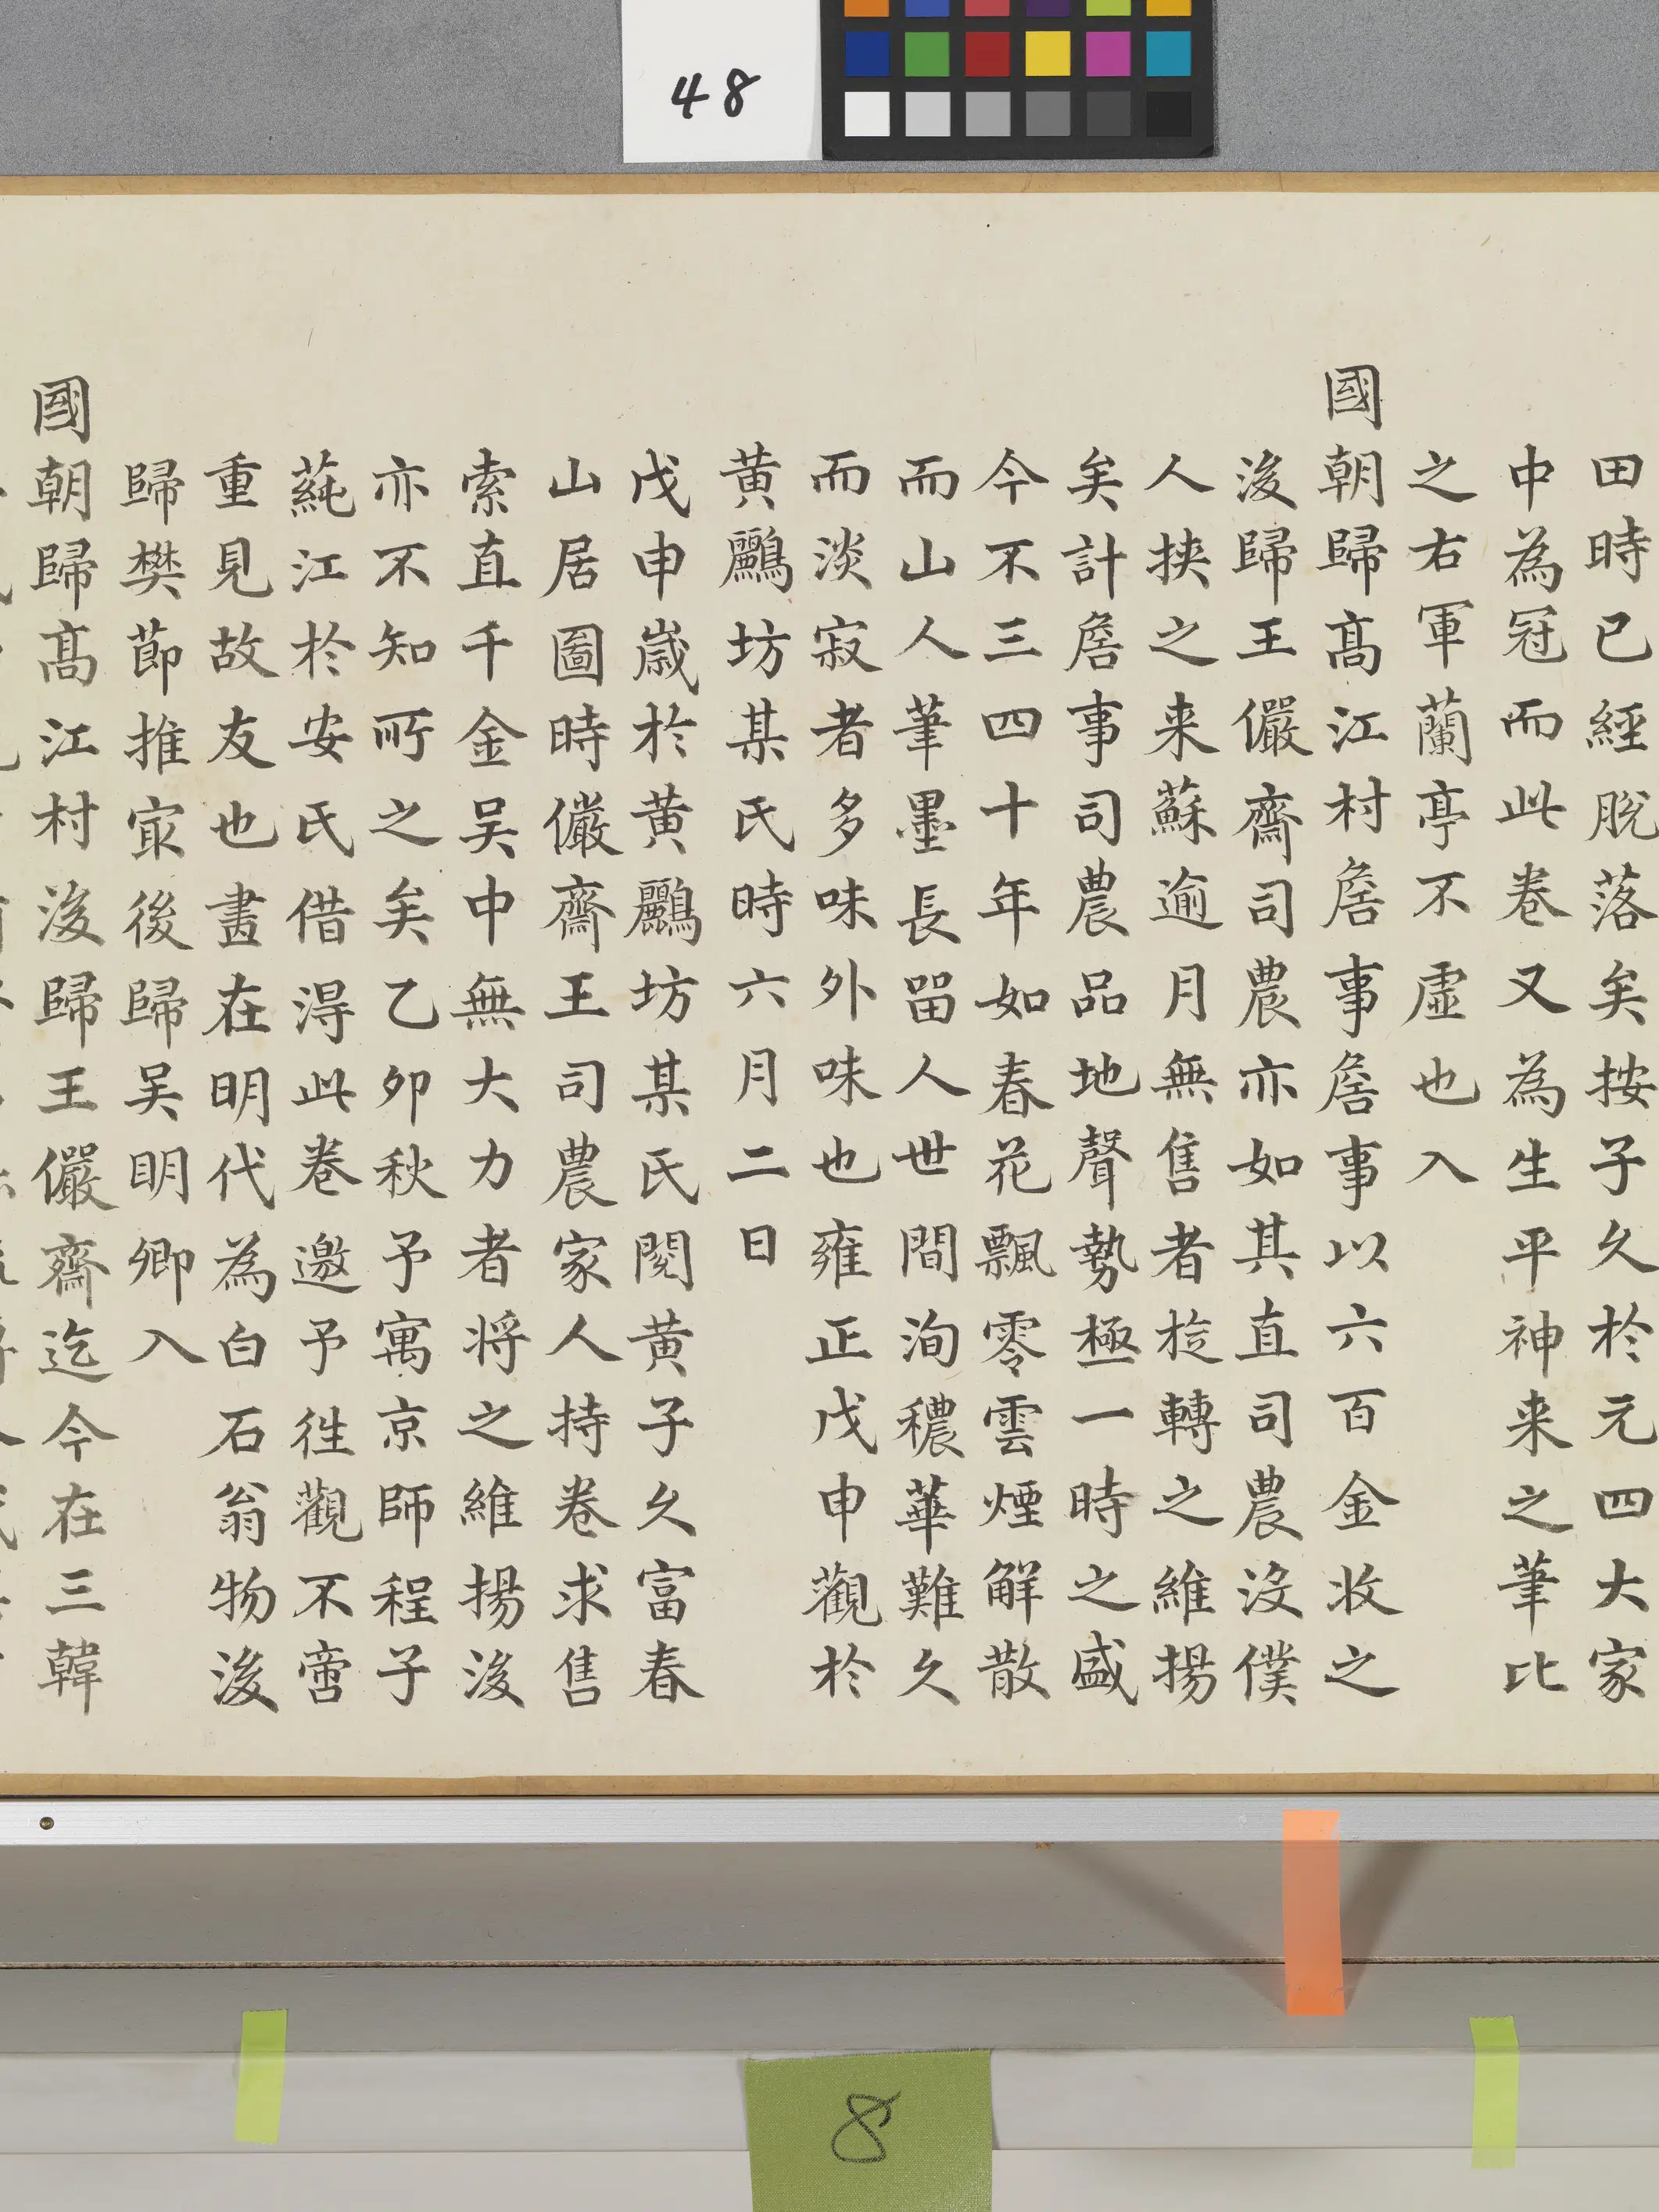 48
田時已經脫落矣按子久於元四大家
中為冠而此卷又為生平神来之筆比
之右軍蘭亭不虛也入
國朝歸髙江村詹事詹事以六百金收之
後歸王儼齋司農亦如其直司農沒僕
人挾之来蘇逾月無售者旋轉之維揚
矣計詹事司農品地聲勢極一時之盛
今不三四十年如春花飄零雲煙解散
而山人筆墨長留人世間洵穠華難久
而淡寂者多味外味也雍正戊申觀於
黄鸝坊某氏時六月二日
戊申歳於黄鸝坊某氏閱黄子久富春
山居圖時儼齋王司農家人持卷求售
索直千金吴中無大力者将之維揚後
亦不知所之矣乙卯秋予寓京師程子
蒓江於安氏借得此卷邀予徃觀不啻
重見故友也畫在明代為白石翁物後
歸樊節推寂後歸吴明卿入
國朝歸髙江村後歸王儼齋迄今在三韓
8